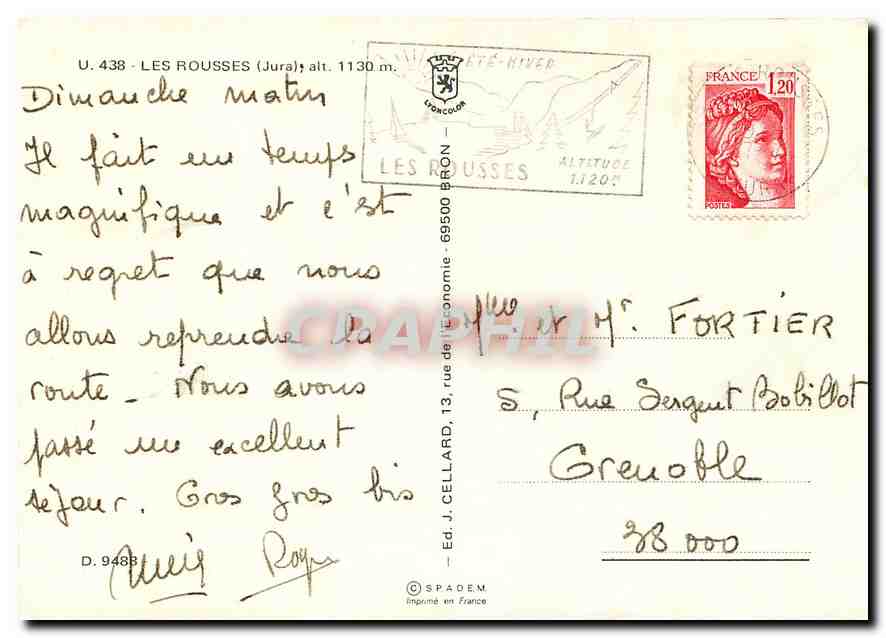 U. 438 - LES ROUSSES (Jura); alt. 1130 m.
Dimanche matin
Il fait un temps
magnifique et c'est
à regret que nous
allons reprendre la
route - Nous avons
passé un excellent
séjour. Gros gros bis
Roger
D. 9488
ÉTÉ-HIVER
LES ROUSSES
ALTITUDE
1.120m
LYONCOLOR
Ed. J. CELLARD, 13, rue de l'Economie - 69500 BRON -
© S.P.A.D.E.M.
Imprimé en France
FRANCE 1,20
POSTES
CPAPHIL
Mme et Mr. FORTIER
5, Rue Sergent Bobillot
Grenoble
38000